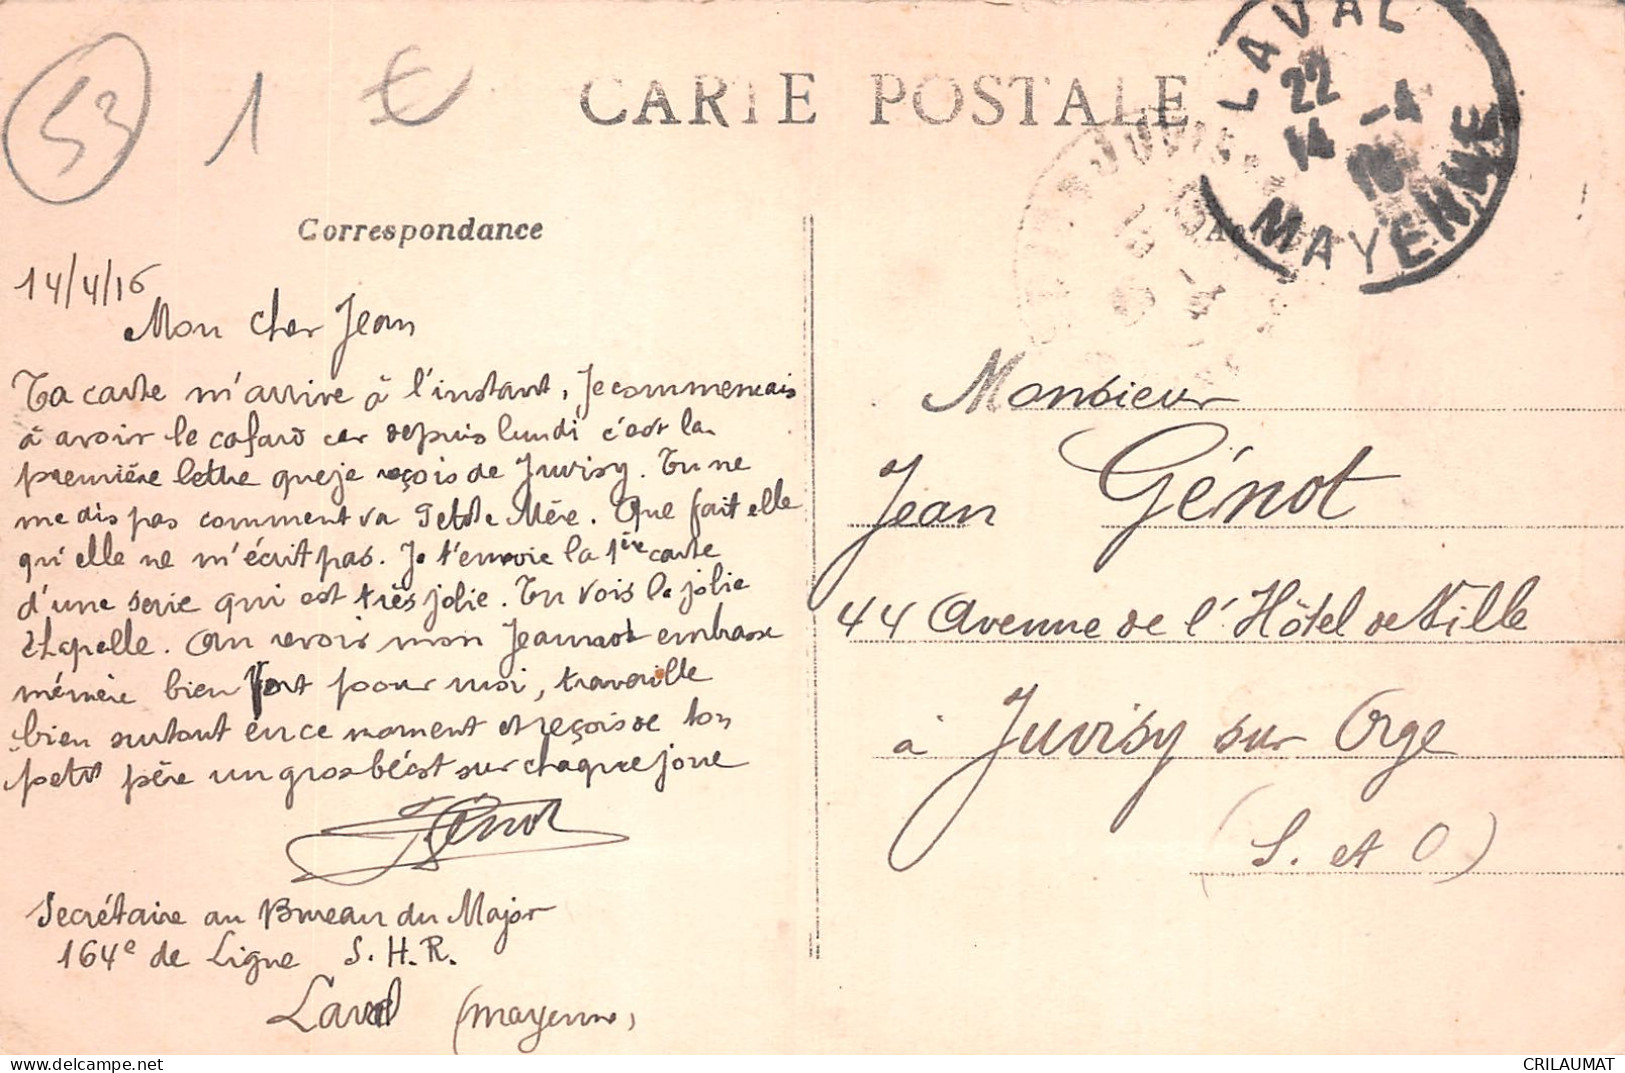 53
1 €
CARTE POSTALE
LAVAL
22
14 -4
16
MAYENNE
JUVISY
Correspondance
14/4/16
Mon cher Jean
Ta carte m'arrive à l'instant, Je commencais
à avoir le cafard car depuis lundi c'est la
première lettre que je reçois de Juvisy. Tu ne
me dis pas comment va Petite Mère. Que fait elle
qu'elle ne m'écrit pas. Je t'envoie la 1ère carte
d'une serie qui est très jolie. Tu vois la jolie
chapelle. Au revoir mon Jeannot embrasse
mémère bien fort pour moi, travaille
bien surtout en ce moment et reçois de ton
petit père un gros bécot sur chaque joue
Génot
Secrétaire au Bureau du Major
164e de Ligne S.H.R.
Laval (Mayenne)
Monsieur
Jean Génot
44 Avenue de l'Hôtel de Ville
à Juvisy sur Orge
(S. et O)
CRILAUMAT